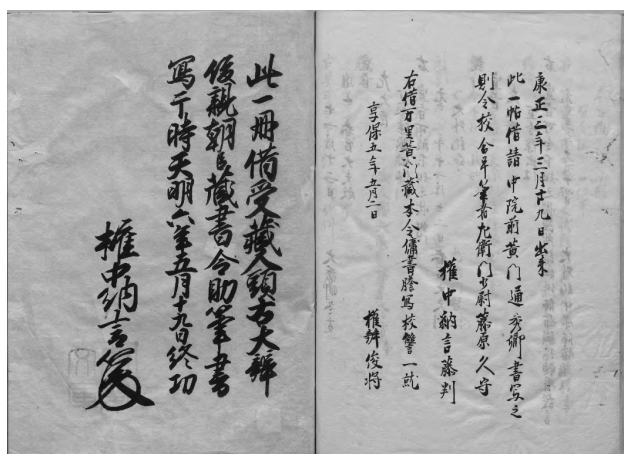 康正三年三月十九日出来
此一帖借請中院前黄門通秀卿書写之
則令校合畢筆者左衛門少尉藤原久守
権中納言藤判
右借万里黄門蔵本令傭書謄写校讐一就
享保五年五月二日
権辨俊将
此一冊借受蔵人頭右大辨
俊親朝臣蔵書令助筆書
写于時天明六年五月十九日終功
権中納言